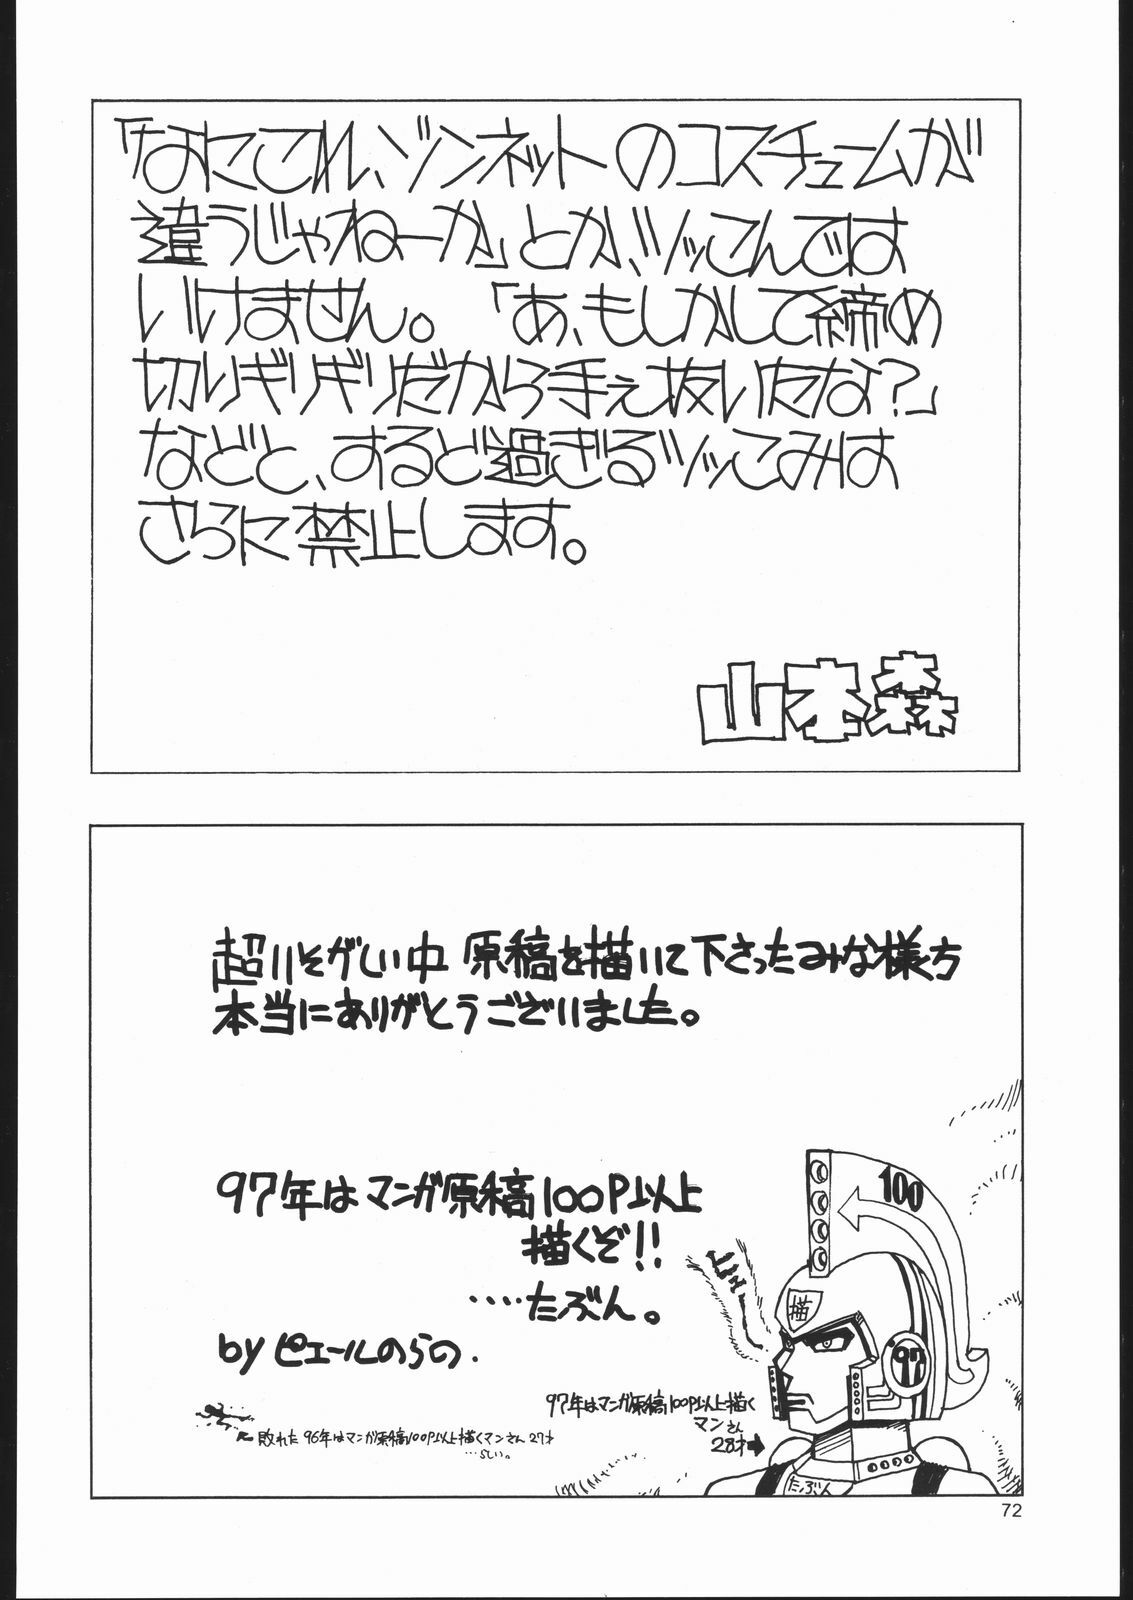 「なにこれ、ゾンネットのコスチュームが
違うじゃねーか」とか、ツッこんでは
いけません。「あ、もしかして締め
切りギリギリだから手え抜いたな?」
などと、するど過ぎるツッこみは
さらに禁止します。
山本森
超いそがしい中 原稿を描いて下さったみな様方
本当にありがとうございました。
97年はマンガ原稿100P以上
描くぞ!!
‥‥たぶん。
by ピエールのらの.
100
描
'97
97年はマンガ原稿100P以上描く
マンさん
28才
敗れた 96年はマンガ原稿100P以上描くマンさん 27才
…らしい。
たぶん
72